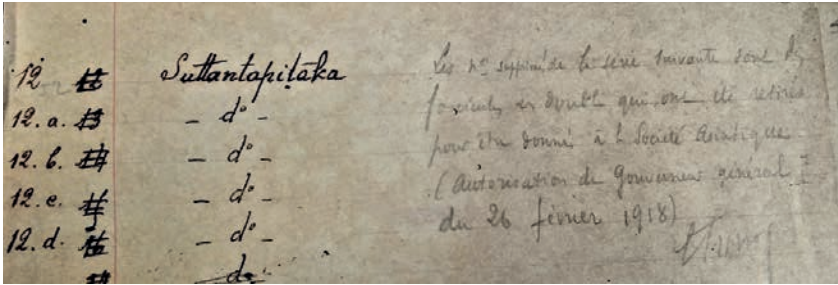 12 Suttantapiṭaka
12.a. 13 - dº -
12.b. 14 - dº -
12.c. - dº -
12.d. 16 - dº -
dº
Les nos supprimés de la série suivante sont des
fascicules en double qui ont été retirés
pour être donnés à la Société Asiatique
(Autorisation du Gouverneur général
du 26 février 1918)